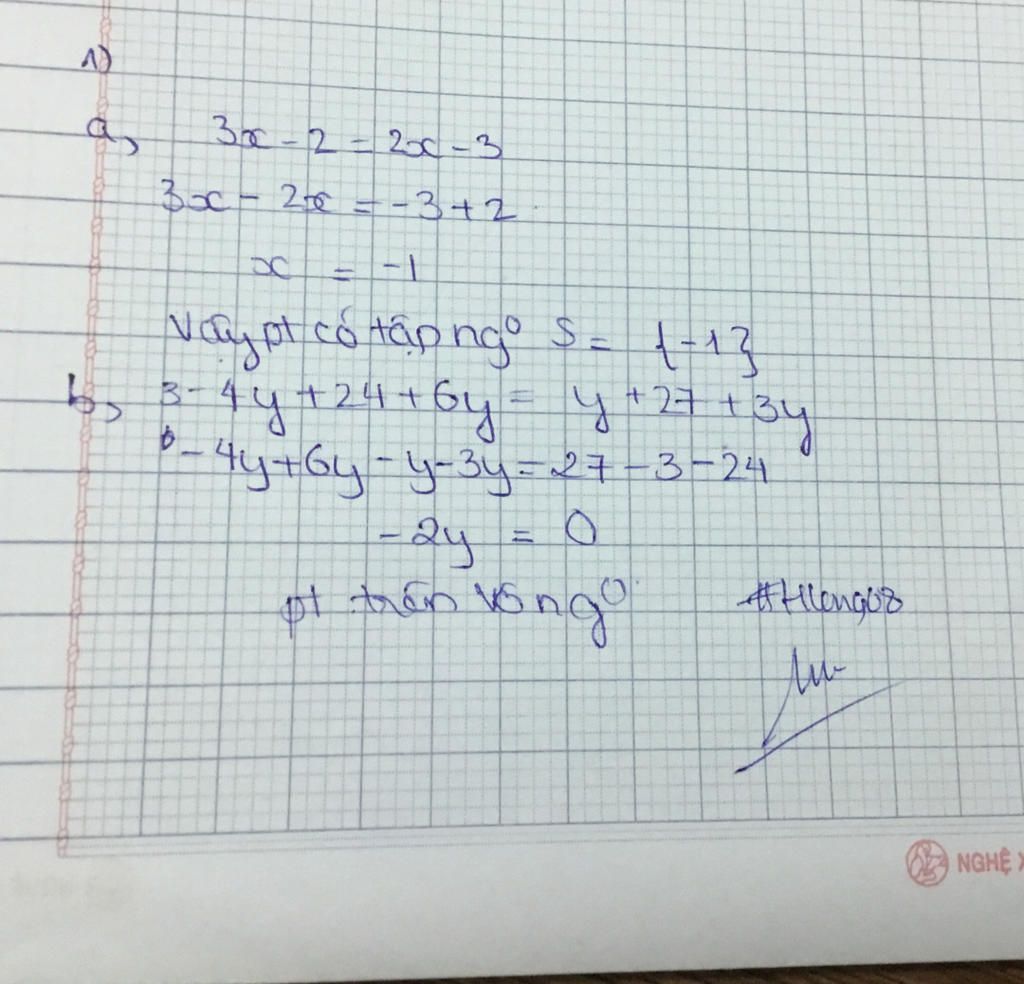 1)
a, 3x - 2 = 2x - 3
3x - 2x = -3 + 2
x = -1
Vậy pt có tập ngo S = {-1}
b, 3 - 4y + 24 + 6y = y + 27 + 3y
- 4y + 6y - y - 3y = 27 - 3 - 24
-2y = 0
pt trên vô ngo
NGHỆ